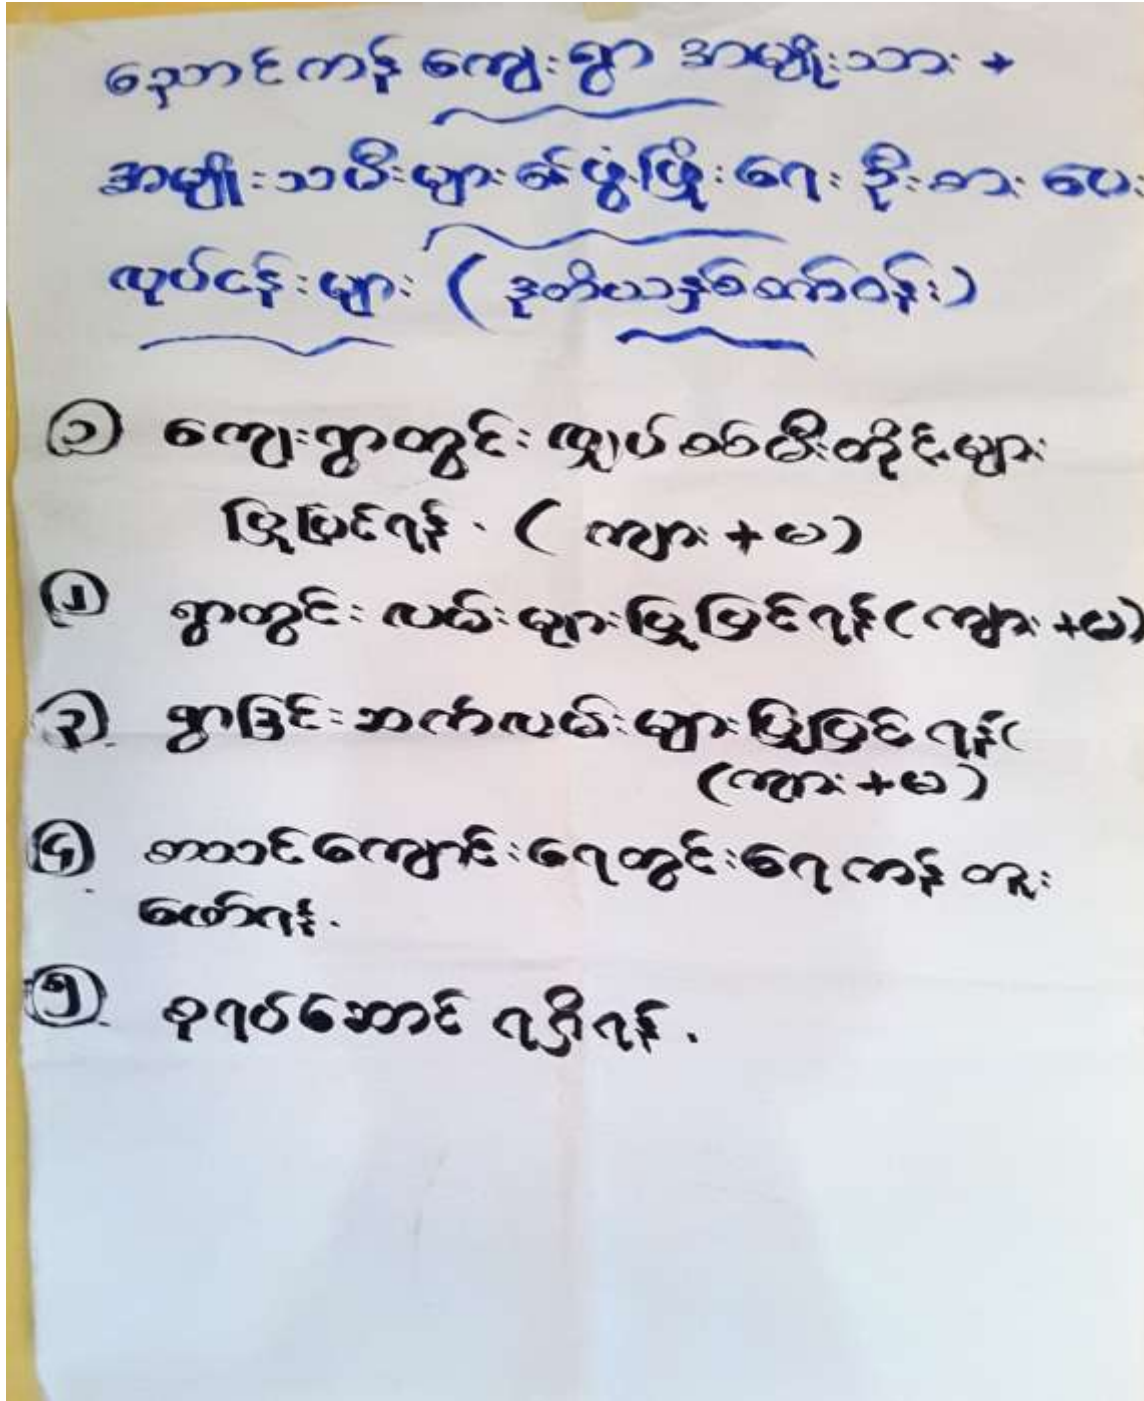 ညောင်ကန် ကျေးရွာ အမျိုးသား +
အမျိုးသမီးများ၏ ဖွံ့ဖြိုးရေး ဦးစားပေး
လုပ်ငန်းများ ( ဒုတိယနှစ်စက်ဝန်း )
၁ ကျေးရွာတွင်း လျှပ်စစ်မီးတိုင်များ
ပြုပြင်ရန် . ( ကျား + မ )
၂ ရွာတွင်း လမ်းများပြုပြင်ရန် ( ကျား + မ )
၃. ရွာခြင်းဆက်လမ်းများ ပြုပြင်ရန် (
( ကျား + မ )
၄. စာသင်ကျောင်း ရေတွင်း ရေကန် တူး
ဖော်ရန် .
၅. စုရပ်ဆောင် ရရှိရန် .